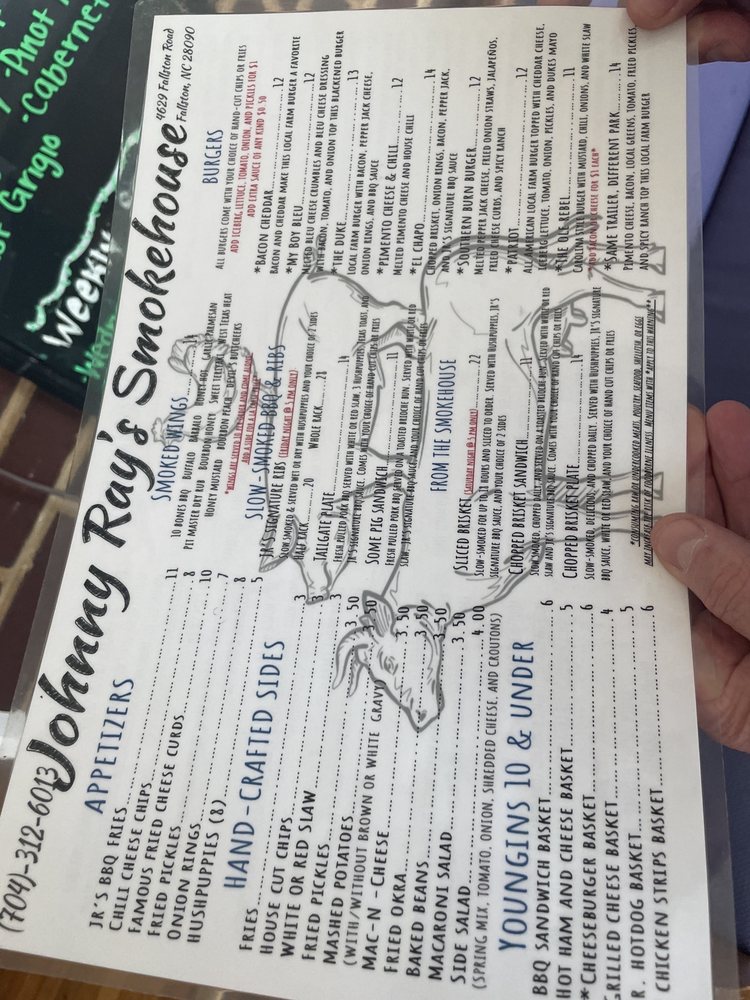 (704)-312-6013
Johnny Ray's Smokehouse
4629 Fallston Road
Fallston, NC 28090
APPETIZERS
JR'S BBQ FRIES 11
CHILI CHEESE CHIPS 8
FAMOUS FRIED CHEESE CURDS 10
FRIED PICKLES 7
ONION RINGS 8
HUSHPUPPIES (8) 5
HAND-CRAFTED SIDES
FRIES 3
HOUSE CUT CHIPS 3
WHITE OR RED SLAW 3
FRIED PICKLES 3.50
MASHED POTATOES 3.50
(WITH/WITHOUT BROWN OR WHITE GRAVY)
MAC-N-CHEESE 3.50
FRIED OKRA 3.50
BAKED BEANS 3.50
MACARONI SALAD 3.50
SIDE SALAD 4.00
(SPRING MIX, TOMATO, ONION, SHREDDED CHEESE, AND CROUTONS)
YOUNGINS 10 & UNDER
BBQ SANDWICH BASKET 6
HOT HAM AND CHEESE BASKET 5
*CHEESEBURGER BASKET 6
GRILLED CHEESE BASKET 4
R. HOTDOG BASKET 5
CHICKEN STRIPS BASKET 6
SMOKED WINGS
10 BONES BBQ BUFFALO DABALO HONEY HOT GARLIC PARMESAN
PIT MASTER DRY RUB BOURBON HONEY SWEET TEXTER SWEET TEXAS HEAT
HONEY MUSTARD BOURBON PEACH
SLOW-SMOKED BBQ & RIBS
JR'S SIGNATURE RIBS (FRIDAY NIGHT @ 5 PM ONLY)
SLOW SMOKED & SERVED WET OR DRY WITH HUSHPUPPIES AND YOUR CHOICE OF 2 SIDES
HALF RACK 20 WHOLE RACK
TAILGATE PLATE 14
FRESH PULLED PORK BBQ SERVED WITH WHITE OR RED SLAW, 3 HUSHPUPPIES, TEXAS TOAST, AND
JR'S SIGNATURE BBQ SAUCE. COMES WITH YOUR CHOICE OF HAND-CUT CHIPS OR FRIES
SOME PIG SANDWICH 11
FRESH PULLED PORK BBQ SERVED ON A TOASTED BRIOCHE BUN. SERVED WITH WHITE OR RED
SLAW, JR'S SIGNATURE BBQ SAUCE, AND YOUR CHOICE OF HAND-CUT CHIPS OR FRIES
FROM THE SMOKEHOUSE
SLICED BRISKET (SATURDAY NIGHT @ 5 PM ONLY) 22
SLOW-SMOKED FOR UP TO 12 HOURS AND SLICED TO ORDER. SERVED WITH HUSHPUPPIES, JR'S
SIGNATURE BBQ SAUCE, AND YOUR CHOICE OF 2 SIDES
CHOPPED BRISKET SANDWICH 11
SLOW-SMOKED, CHOPPED DAILY, AND SERVED ON A TOASTED BRIOCHE BUN. SERVED WITH WHITE OR RED
SLAW AND JR'S SIGNATURE BBQ SAUCE. COMES WITH YOUR CHOICE OF HAND CUT CHIPS OR FRIES
CHOPPED BRISKET PLATE 14
SLOW-SMOKED, DELICIOUS, AND CHOPPED DAILY. SERVED WITH HUSHPUPPIES, JR'S SIGNATURE
BBQ SAUCE, WHITE OR RED SLAW, AND YOUR CHOICE OF HAND CUT CHIPS OR FRIES
*CONSUMING RAW OR UNDERCOOKED MEATS, POULTRY, SEAFOOD, SHELLFISH, OR EGGS
MAY INCREASE THE RISK OF FOODBORNE ILLNESS. MENU ITEMS WITH * APPLY TO THIS WARNING**
BURGERS
ALL BURGERS COME WITH YOUR CHOICE OF HAND-CUT CHIPS OR FRIES
ADD ICEBERG, LETTUCE, TOMATO, ONION, AND PICKLES FOR $1
ADD EXTRA SAUCE OF ANY KIND $0.50
*BACON CHEDDAR 12
BACON AND CHEDDAR MAKE THIS LOCAL FARM BURGER A FAVORITE
*MY BOY BLEU 12
MELTED BLEU CHEESE CRUMBLES AND BLEU CHEESE DRESSING
WITH BACON, TOMATO, AND ONION TOP THIS BLACKENED BURGER
*THE DUKE 13
LOCAL FARM BURGER WITH BACON, PEPPER JACK CHEESE,
ONION RINGS, AND BBQ SAUCE
*PIMENTO CHEESE & CHILI 12
MELTED PIMENTO CHEESE AND HOUSE CHILI
*EL CHAPO 14
CHOPPED BRISKET, ONION RINGS, BACON, PEPPER JACK,
AND JR'S SIGNATURE BBQ SAUCE
*SOUTHERN BURN BURGER 12
MELTED PEPPER JACK CHEESE, FRIED ONION STRAWS, JALAPEÑOS,
FRIED CHEESE CURDS, AND SPICY RANCH
*PATRIOT 12
ALL AMERICAN LOCAL FARM BURGER TOPPED WITH CHEDDAR CHEESE,
ICEBERG LETTUCE, TOMATO, ONION, PICKLES, AND DUKES MAYO
*THE OLE REBEL 11
CAROLINA STYLE BURGER WITH MUSTARD, CHILI, ONIONS, AND WHITE SLAW
*ADD BACON OR CHEESE FOR $1 EACH*
*SAME TRAILER, DIFFERENT PARK 14
PIMENTO CHEESE, BACON, LOCAL GREENS, TOMATO, FRIED PICKLES,
AND SPICY RANCH TOP THIS LOCAL FARM BURGER
-Pinot
Grigio -Cabernet
Weekly